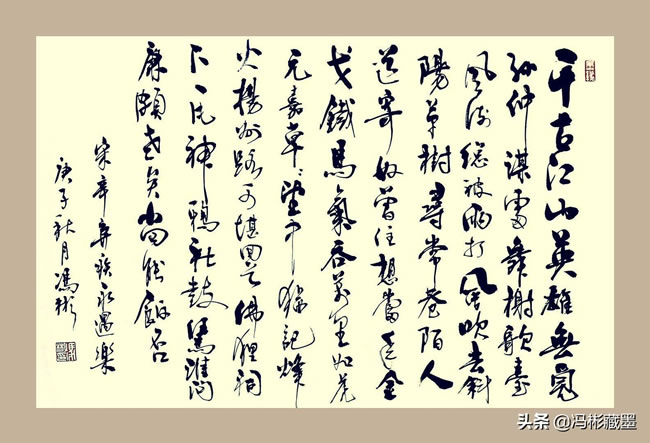 千古江山英雄無覓
孫仲謀處舞榭歌臺
風流總被雨打風吹去斜
陽草樹尋常巷陌人
道寄奴曾住想當年金
戈鐵馬氣吞萬里如虎
元嘉草草望中猶記烽
火揚州路可堪回首佛狸祠
下一片神鴉社鼓憑誰問
廉頗老矣尚能飯否
宋辛棄疾永遇樂
庚子秋月馮彬
头条 @冯彬藏墨